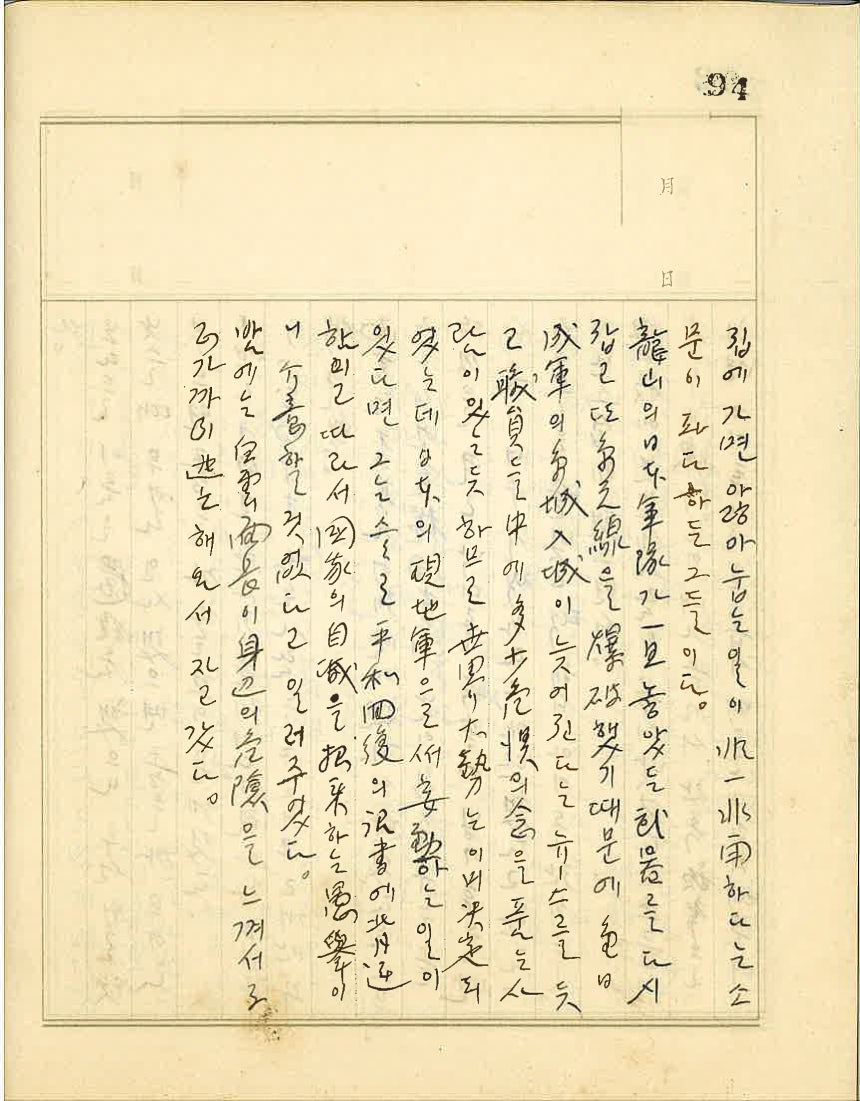 94
月
日
집에 가면 앓아 눕는 일이 非一非再하다는 소
문이 파다하든 그들이다。
龍山의 日本軍隊가 一旦 놓았든 武器를 다시
잡고 또 京元線을 爆破했기 때문에 今日
美軍의 京城入城이 늦어진다는 뉴-스를 듯
고 職員들 中에 多少 危惧의 念을 품는 사
람이 있는 듯 하므로 世界大勢는 이미 決定되
였는데 日本의 現地軍으로써 妄動하는 일이
있다면 그는 스스로 平和回復의 詔書에 背逆
함이고 따라서 國家의 自滅을 招来하는 愚擧이
니 介意할 것 없다고 일러주었다。
밤에는 白雲 兩君이 身辺의 危險을 느껴서 우
리가까이 오서 자고 갔다。